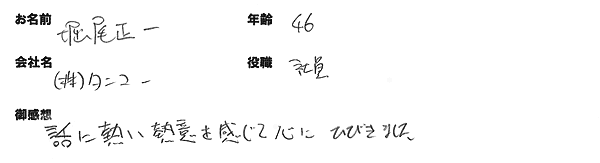 お名前 堀尾正一 年齢 46
会社名 (株)タンコー 役職 社員
御感想
話に熱い熱意を感じて心にひびきました